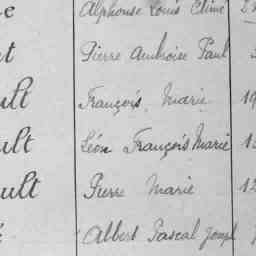 e Alphonse Louis Climé 2
t Pierre Ambroise Paul
ult François Marie 19
ult Léon François Marie 1
ult Pierre Marie 12
Albert Pascal Joseph